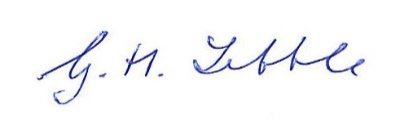 G. H. Tebble